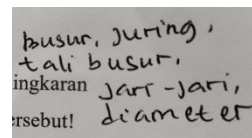 busur, juring,
tali busur,
ingkaran jari-jari,
ersebut! diameter